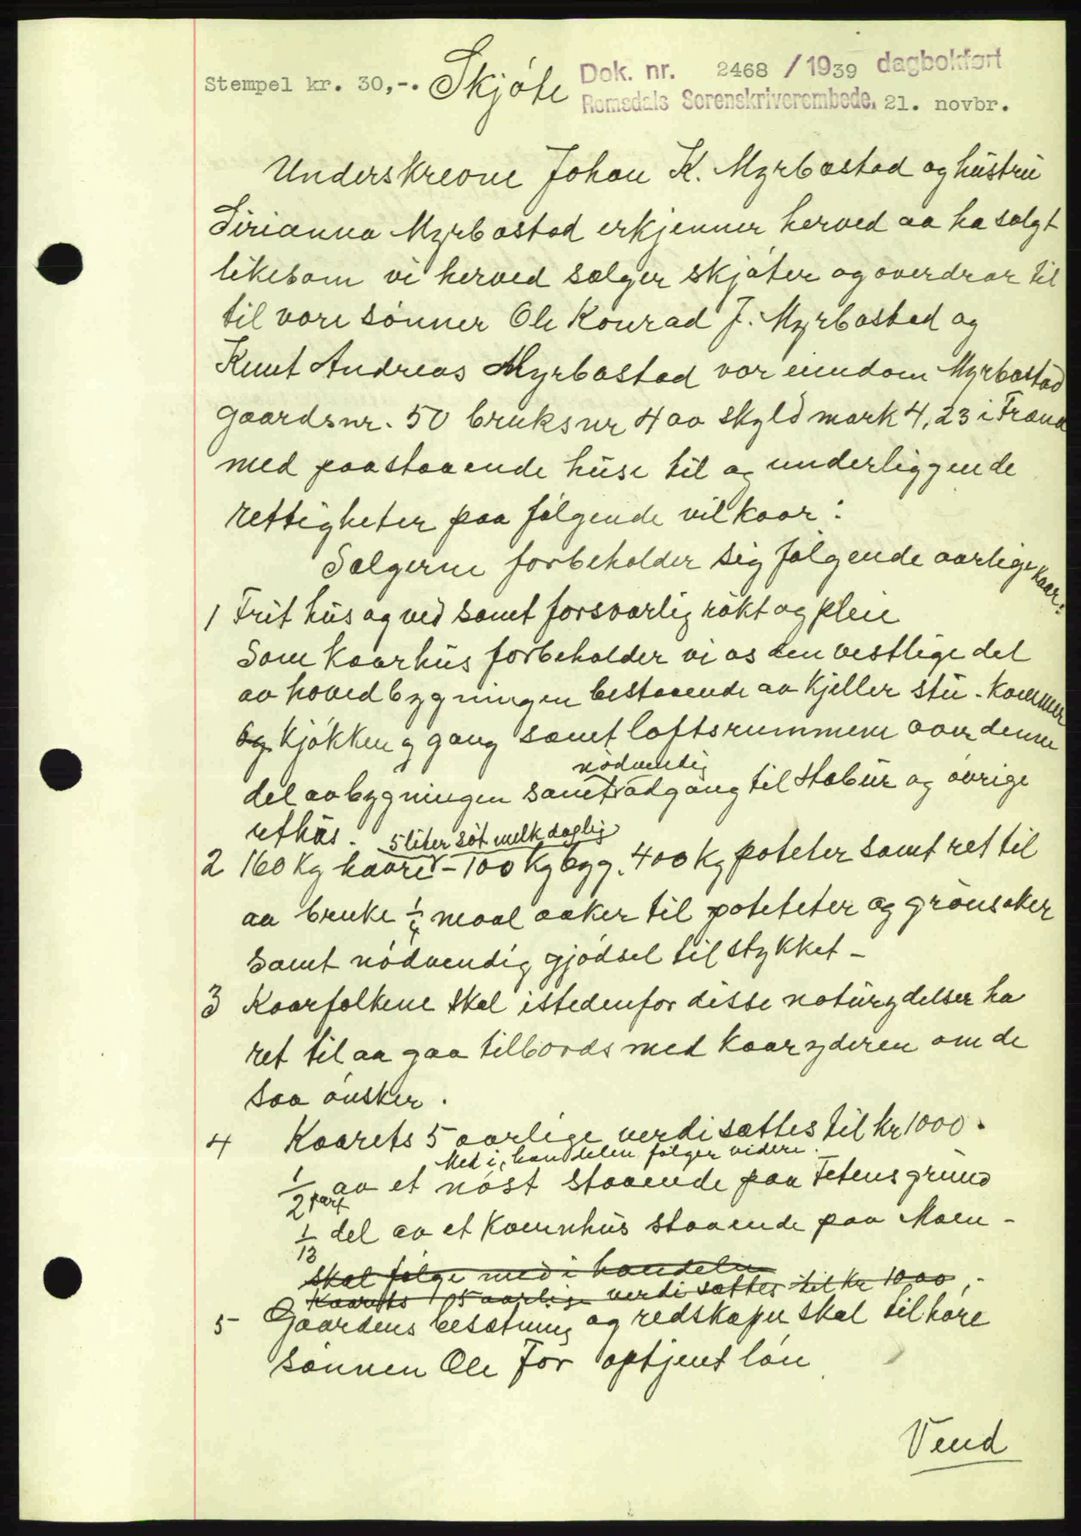 Stempel kr. 30,-. Skjöte Dok. nr. 2468 /1939 dagbokført
Romsdals Sorenskriverembede. 21. novbr.
Underskrevne Johan K. Myrbostad og hustru
Sirianna Myrbostad erkjenner herved aa ha solgt
likesom vi herved sælger skjöter og overdrar til
til vore sönner Ole Konrad J. Myrbostad og
Knut Andreas Myrbostad vor eiendom Myrbostad
gaardsnr. 50 bruksnr 4 av skyld mark 4,23 i Fræna
med paastaaende huse til og underliggende
rettigheter paa fölgende vilkaar:
Sælgerne forbeholder sig fölgende aarlige kaar:
1 Frit hus og ved samt forsvarlig rökt og pleie
Som kaarhus forbeholder vi os den vestlige del
av hovedbygningen bestaaende av kjeller stu - kammer
og kjökken og gang samt loftsrummene over denne
nödvendig
del av bygningen samt adgang til Stabur og övrige
uthus. 5 liter söt melk daglig
2 160 kg havre - 100 kg bygg. 400 kg poteter samt ret til
aa bruke 1/4 maal aaker til poteteter og grönsaker
samt nödvendig gjödsel til stykket -
3 Kaarfolkene skal istedenfor disse naturydelser ha
ret til aa gaa tilbords med kaaryderen om de
saa önsker.
4 Kaarets 5 aarlige verdi sættes til kr 1000.
Med i handelen fölger videre.
1/2 part av et nöst staaende paa Tetens grund
1/13 del av et kvernhus staaende paa Moen -
skal fölge med i handelen
Kaarets 5 aarlige verdi sættes til kr 1000,-
5 Gaardens besætning og redskaper skal tilhöre
sönnen Ole for optjent lön
Vend